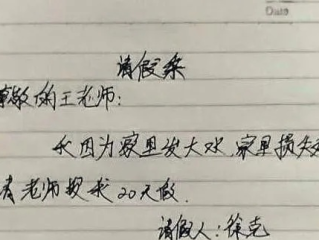 Date
请假条
尊敬的王老师:
我因为家里发大水,家里损失
老师授我20天假.
请假人:徐克